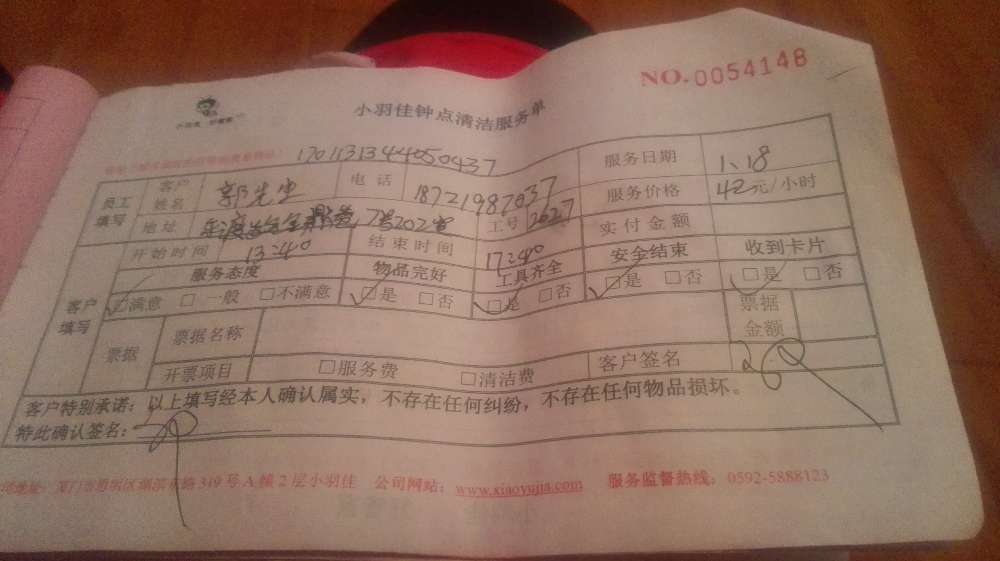 NO.0054148
小羽佳钟点清洁服务单
17011313444050437
员工填写 客户姓名 郭先生 电话 18721987037 服务日期 1.18
地址 7号202室 工号 2627 服务价格 42元/小时
开始时间 13:40 结束时间 17:40 实付金额
客户填写 服务态度 物品完好 工具齐全 安全结束 收到卡片
☑满意 □一般 □不满意 ☑是 □否 ☑是 □否 ☑是 □否 ☑是 □否
票据 票据名称 票据金额
开票项目 □服务费 □清洁费 客户签名
客户特别承诺:以上填写经本人确认属实,不存在任何纠纷,不存在任何物品损坏。
特此确认签名:
319号A幢2层小羽佳 公司网站:www.xiaoyujia.com 服务监督热线:0592-5888123